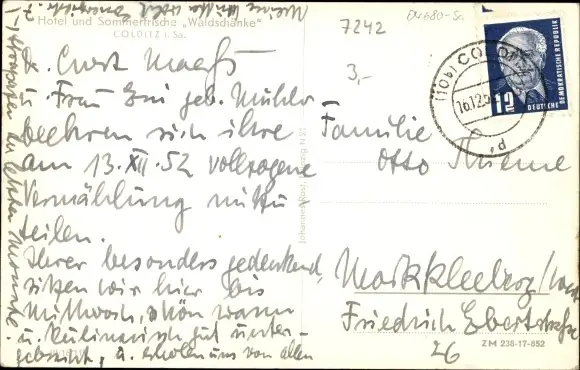 Hotel und Sommerfrische "Waldschänke"
COLDITZ i. Sa.
Dr. Curt Maaß
u. Frau Evi geb. Mühle
beehren sich ihre
am 13. XII. 52 vollzogene
Vermählung mitzu-
teilen.
Ihrer besonders gedenkend,
sitzen wir hier bis
Mittwoch, schön warm
u. kulinarisch gut unter-
gebracht, u. erholen uns von allen
Strapazen der letzten Monate.
7242
3,-
(10b) COLDITZ
16.12.5
12
DEUTSCHE
DEMOKRATISCHE REPUBLIK
Familie
Otto Thieme
Markkleeberg
Friedrich Ebertstraße
26
ZM 238-17-852